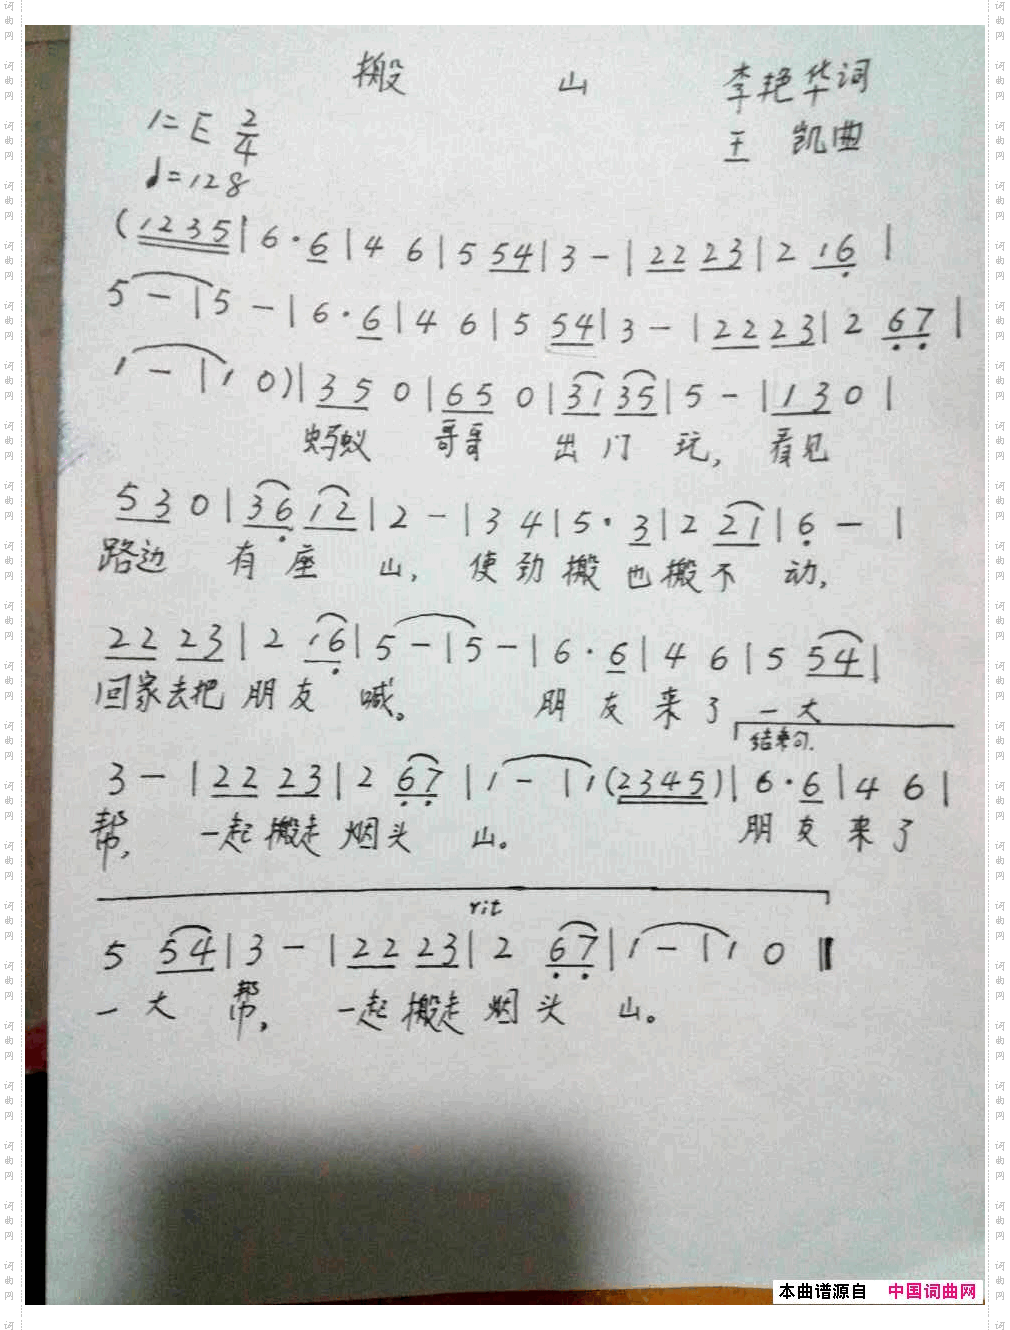 搬 山 李艳华词
1=E 2/4 王 凯曲
♩=128
(1235|6·6|46|554|3-|2223|216|
5-|5-|6·6|46|554|3-|2223|267|
1-|10)|350|650|3135|5-|130|
蚂蚁 哥哥 出门玩, 看见
530|3612|2-|34|5·3|221|6-|
路边 有座 山, 使劲搬也搬不 动,
2223|216|5-|5-|6·6|46|554|
回家去把朋友 喊。 朋友来了 一大
结束句.
3-|2223|267|1-|1(2345)|6·6|46|
帮, 一起搬走烟头 山。 朋友来了
rit
554|3-|2223|267|1-|10‖
一大 帮, 一起搬走烟头 山。
本曲谱源自 中国词曲网